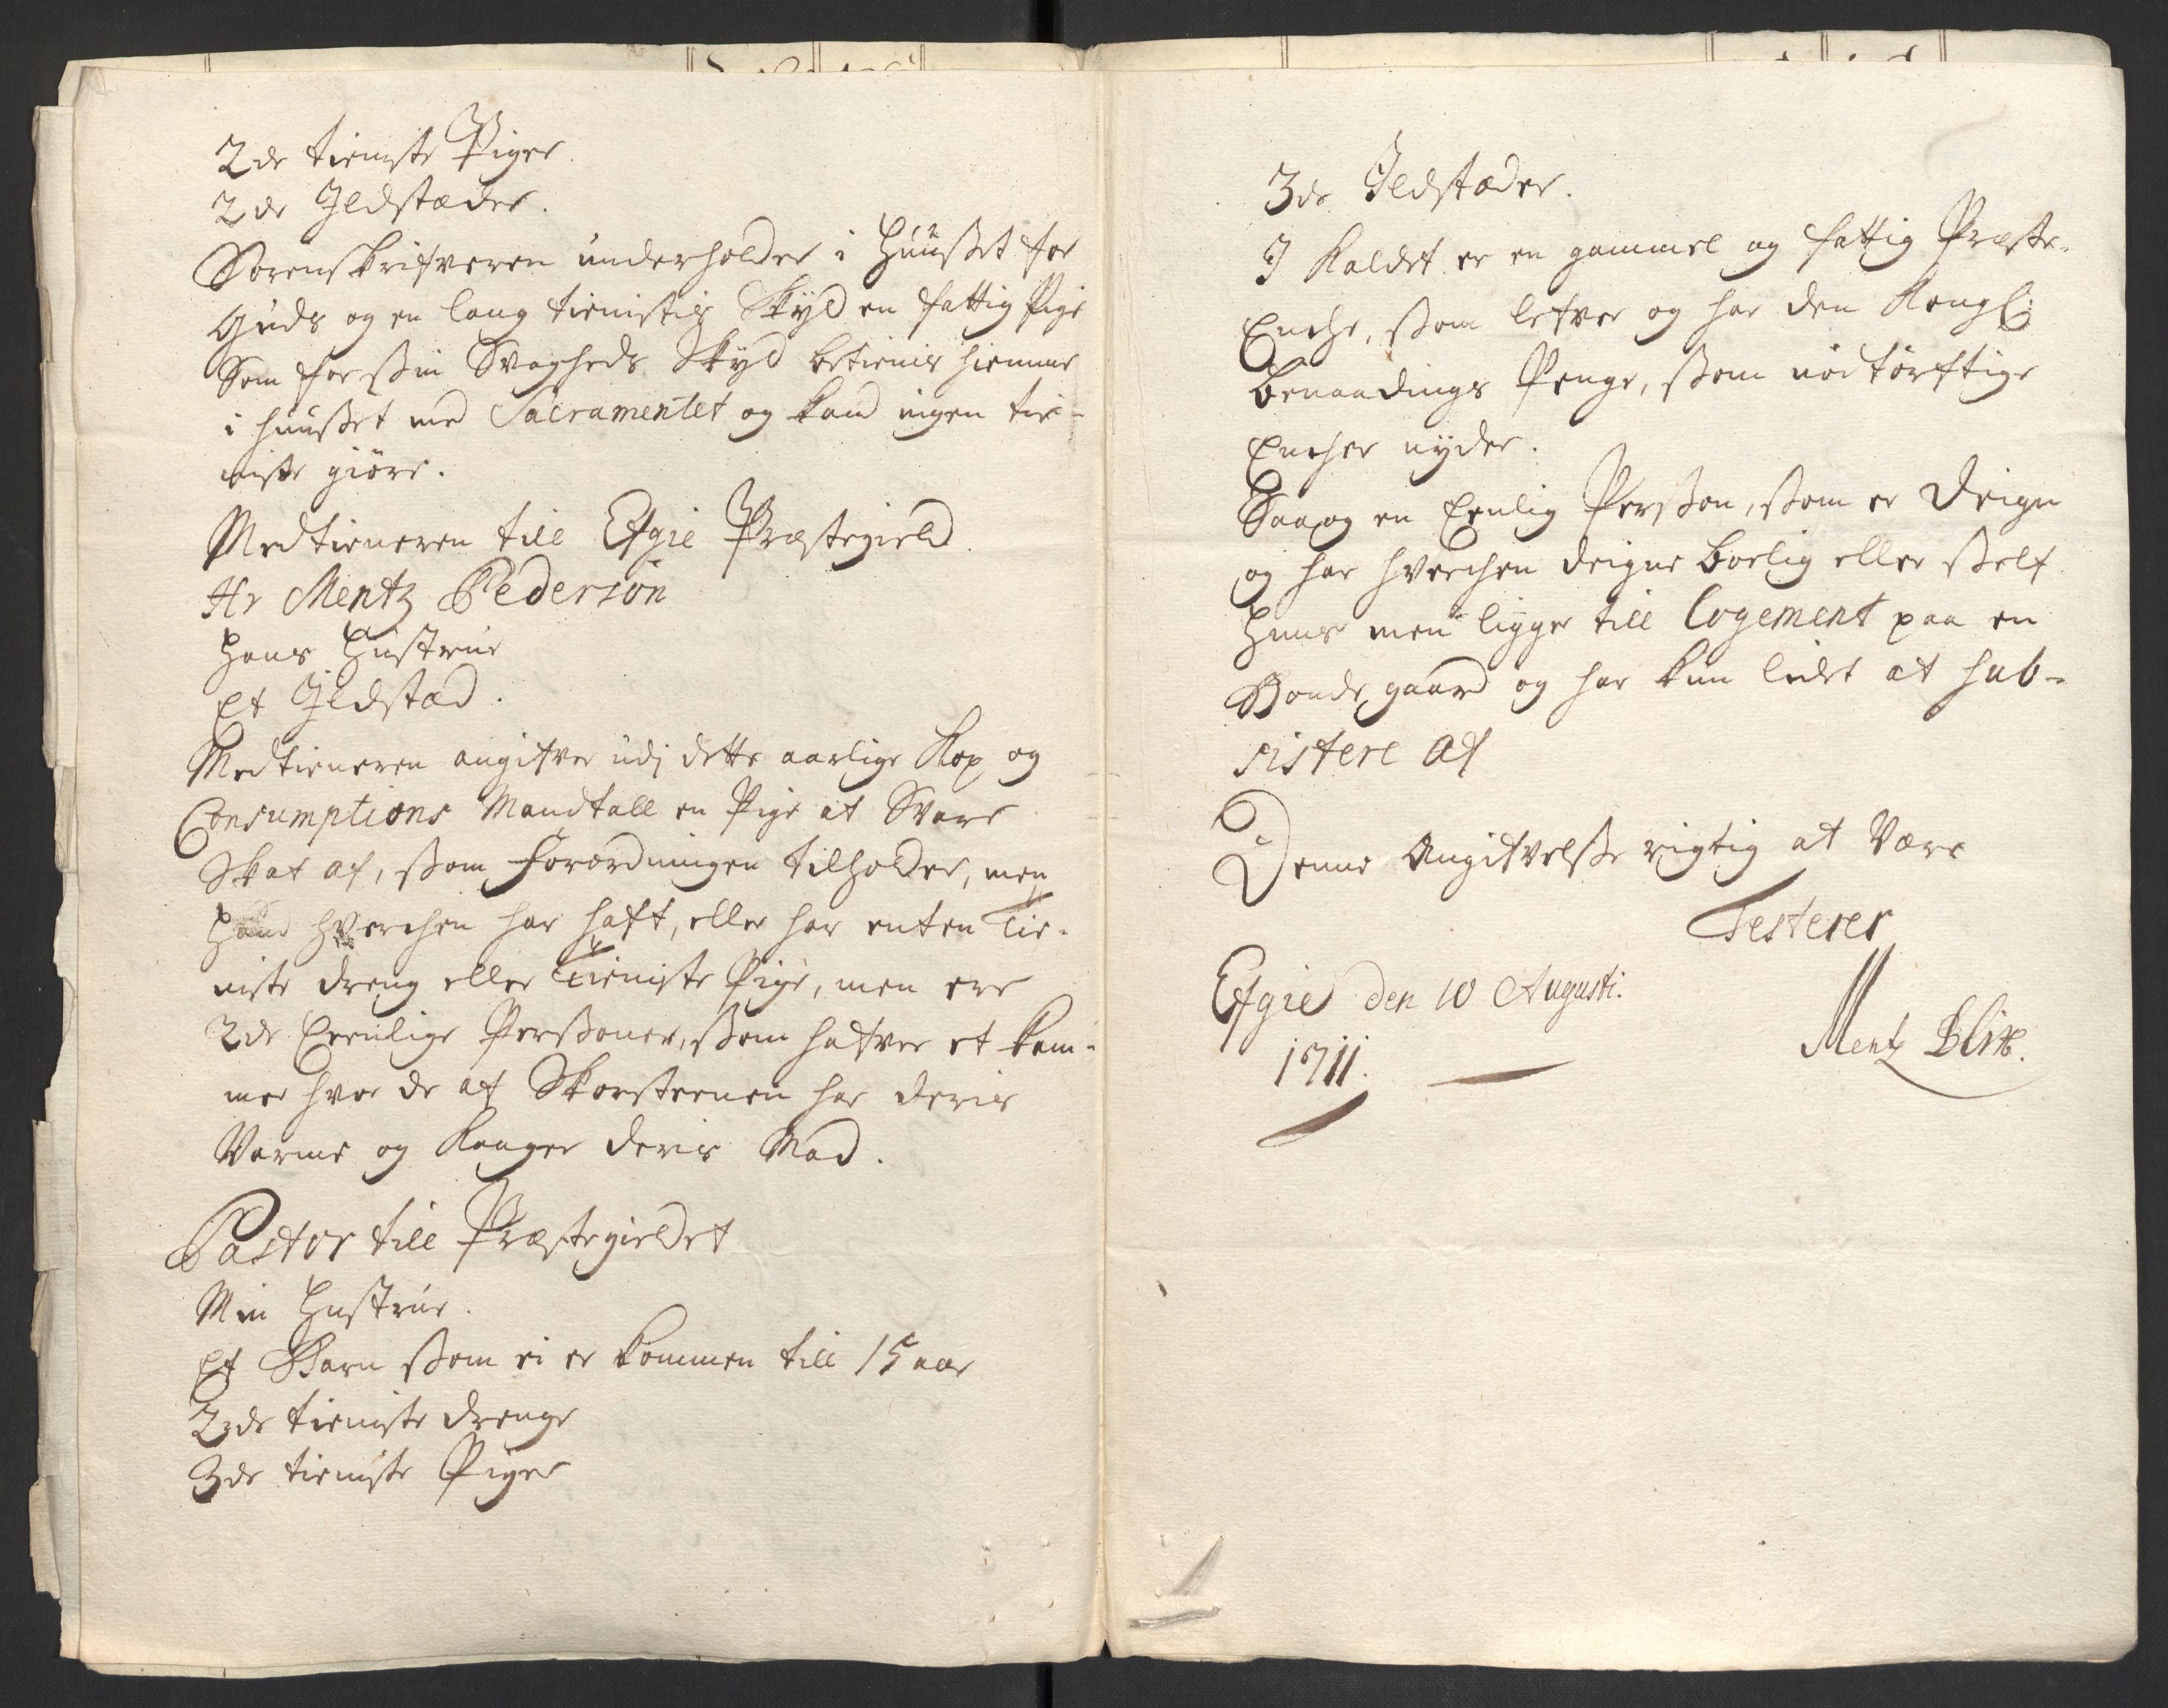 2de tieniste Piger
2de Ildstæder.
Sorenskrifveren underholder i Huuset for
Guds og en lang tienistis Skyld en fattig Pige
Som for ßin Svagheds Skyld betienis hiemme
i huußet med Sacramentet og kand ingen tie-
niste giöre.
Medtieneren till Efgie Præstegield
Hr Mentz Pedersøn
Hans Hustrue
Et Ildstæd.
Medtieneren angifver udj dette aarlige Kop og
Consumptions Mandtall en Pige at Svare
Skat af, ßom Forordningen tilholder, men
Hand hverchen har haft, eller har enten Tie-
niste dreng eller Tieniste Pige, men ere
2de Eenlige Perßoner, ßom hafver et Kam-
mer hvor de af Skorsteenen har deris
Varme og Kaager deris Mad.
Pastor till Præstegieldet
Min Hustrue.
Et Barn ßom ei er kommen till 15 aar
2de tieniste drenge
3de tieniste Piger
3de Ildstæder.
I Kaldet er en gammel og fattig Præste-
Enche, ßom lefver og har den Kongl:
Benaadings Penge, ßom nödtörftige
Encher nyder.
Saa og en Eenlig Perßon, ßom er Deign
og har hverchen deigne boelig eller ßelf
Huus men ligger till Logement paa en
Bonde gaard og har kun lidet at sub-
sistere af
Denne Angifvelße rigtig at Være
Testerer
Efgie den 10 Augusti.
1711.
Mentz Blix.